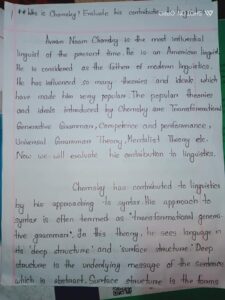 ** Who is Chomsky? Evaluate his contribution to linguistics.
Avram Noam Chomsky is the most influential
linguist of the present time. He is an American linguist.
He is considered as the father of modern linguistics.
He has influenced so many theories and ideals which
have made him very popular. The popular theories
and ideals introduced by Chomsky are 'Transformational
Generative Grammar, Competence and performance,
Universal Grammar Theory, Mentalist Theory etc.
Now we will evaluate his contribution to linguistics.
Chomsky has contributed to linguistics
by his approaching to syntax. His approach to
syntax is often termed as 'transformational genera-
tive grammar'. In this theory, he sees language in
its 'deep structure' and 'surface structure'. Deep
structure is the underlying message of the sentence
which is abstract. Surface structure is the forms